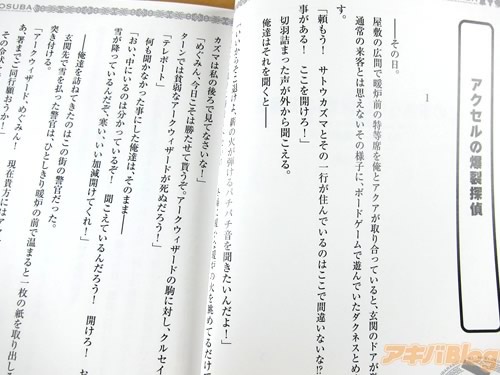 アクセルの爆裂探偵
1
――その日。
屋敷の広間で暖炉前の特等席を俺とアクアが取り合っていると、玄関のドアが
す。
通常の来客とは思えないその様子に、ボードゲームで遊んでいたダクネスとめ
「頼もう! サトウカズマとその一行が住んでいるのはここで間違いないな!?
事がある! ここを開けろ!」
切羽詰まった声が外から聞こえる。
俺はそれを聞くと――
薪の火が弾けるパチパチ音を聞きたいんだよ!」
の火を眺めてるだけ
カズマは私の後ろで見てなさいな!」
「めぐみん、今日こそは勝たせて貰うぞ。アークウィザードの駒に対し、クルセイ
ターンでは貧弱なアークウィザードが死ぬだろう!」
「テレポート」
何も聞かなかった事にした俺達は、そのまま――
「おい、中にいるのは分かっているぞ! 聞こえているんだろう! 開けろ! お
雪が降っているんだぞ、寒い、いい加減開けてくれ!」
――俺達を訪ねてきたのはこの街の警官だった。
玄関先で雪を払った警官は、ひとしきり暖炉の前で温まると一枚の紙を取り出して
突き付ける。
「アークウィザード、めぐみん! 現在貴方にはアー
、署までご同行願おうか!」
その令状
OSUBA
アキバBlog